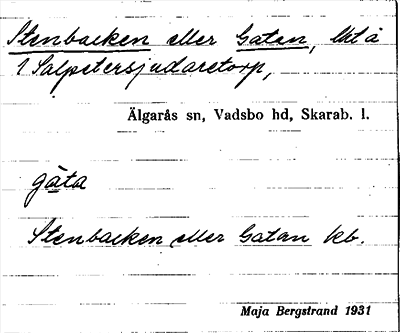 Stenbacken eller Gatan, lht å
1 Salpetersjudaretorp,
Älgarås sn, Vadsbo hd, Skarab. l.
gata
Stenbacken eller Gatan kb.
Maja Bergstrand 1931